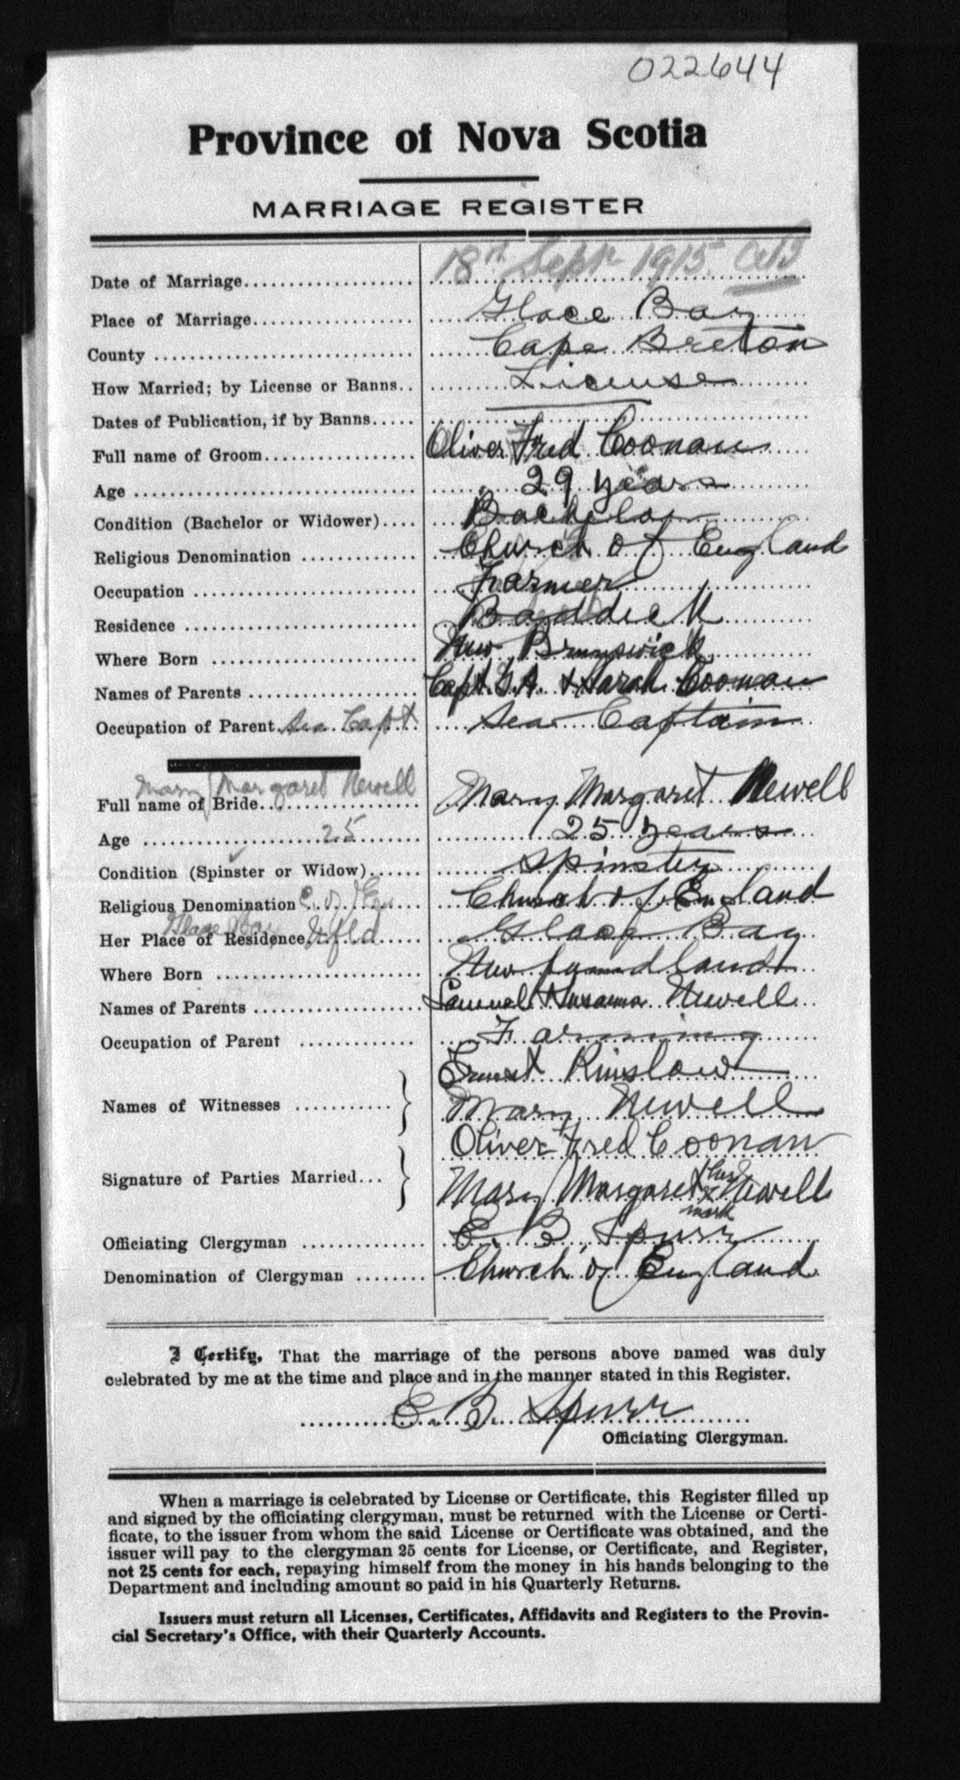 022644
Province of Nova Scotia
MARRIAGE REGISTER
Date of Marriage 18th Sept 1915
Place of Marriage Glace Bay
County Cape Breton
How Married; by License or Banns License
Dates of Publication, if by Banns
Full name of Groom Oliver Fred Coonan
Age 29 years
Condition (Bachelor or Widower) Bachelor
Religious Denomination Church of England
Occupation Farmer
Residence Baddeck
Where Born New Brunswick
Names of Parents Capt. G.A. & Sarah Coonan
Occupation of Parent Sea Capt Sea Captain
Mary Margaret Newell
Full name of Bride Mary Margaret Newell
Age 25 25 years
Condition (Spinster or Widow) Spinster
Religious Denomination C. of Eng Church of England
Her Place of Residence Glace Bay Nfld Glace Bay
Where Born Newfoundland
Names of Parents Samuel & Susanna Newell
Occupation of Parent Farming
Ernest Kinslow
Names of Witnesses Mary Newell
Oliver Fred Coonan
Signature of Parties Married Mary Margaret her x mark Newell
Officiating Clergyman E. B. Spurr
Denomination of Clergyman Church of England
I Certify, That the marriage of the persons above named was duly
celebrated by me at the time and place and in the manner stated in this Register.
E. B. Spurr
Officiating Clergyman.
When a marriage is celebrated by License or Certificate, this Register filled up
and signed by the officiating clergyman, must be returned with the License or Certi-
ficate, to the issuer from whom the said License or Certificate was obtained, and the
issuer will pay to the clergyman 25 cents for License, or Certificate, and Register,
not 25 cents for each, repaying himself from the money in his hands belonging to the
Department and including amount so paid in his Quarterly Returns.
Issuers must return all Licenses, Certificates, Affidavits and Registers to the Provin-
cial Secretary's Office, with their Quarterly Accounts.